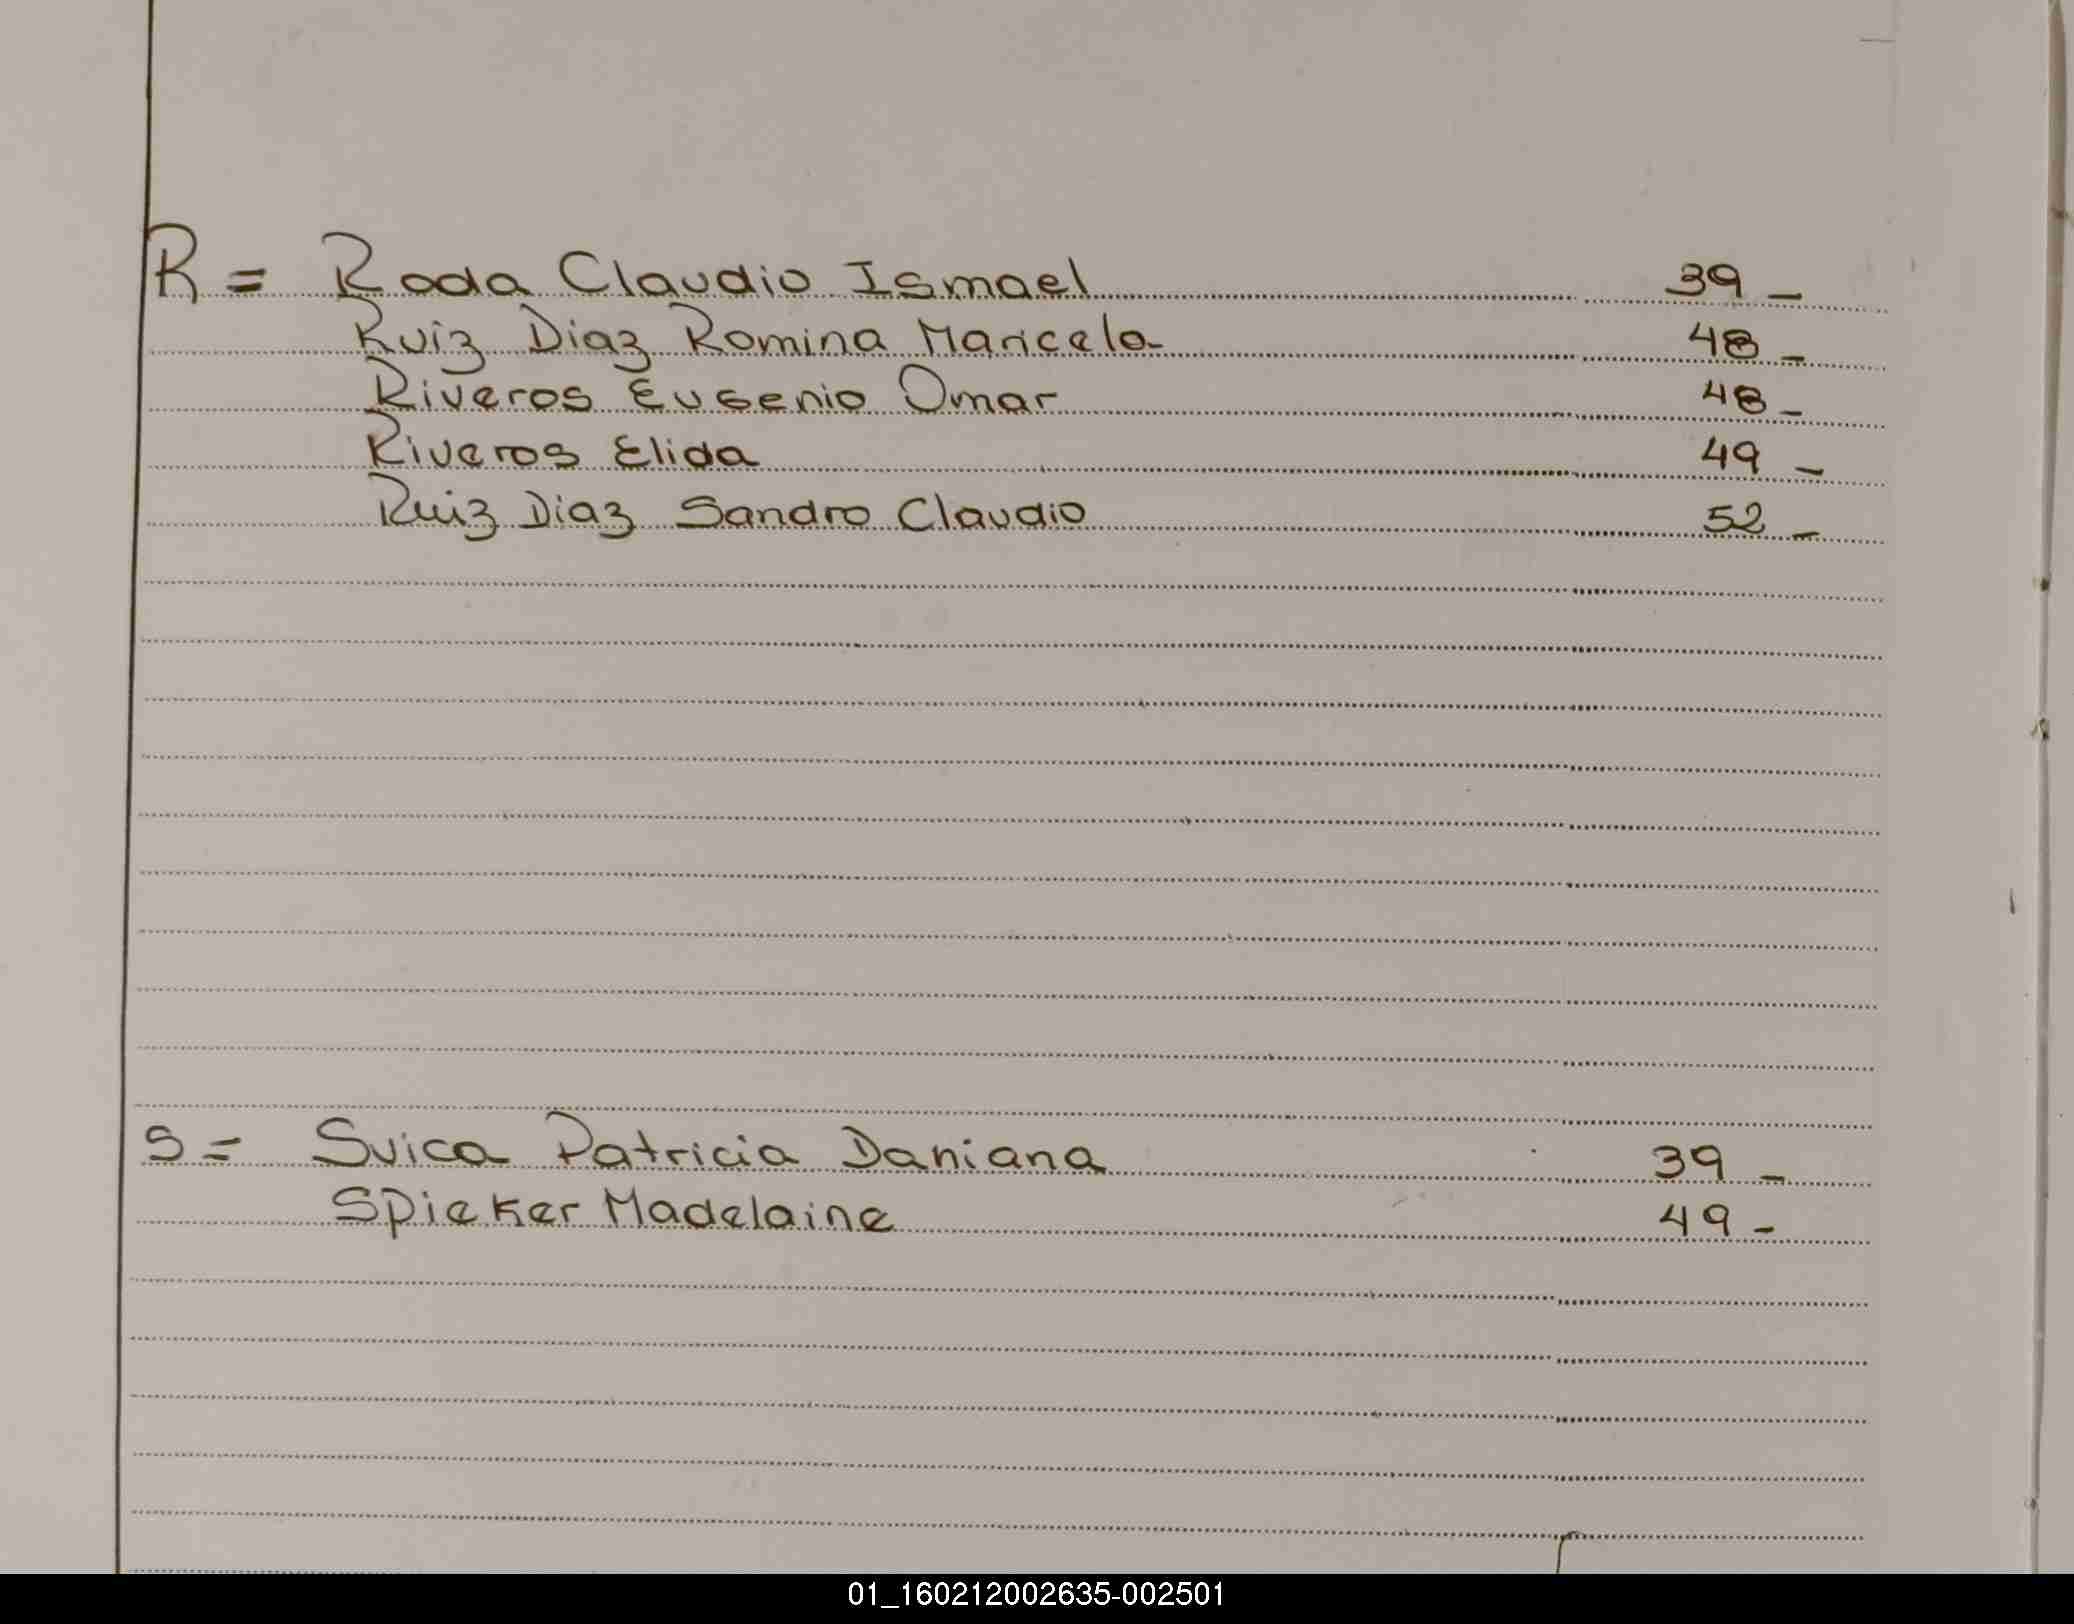 R = Roda Claudio Ismael 39 -
Ruiz Diaz Romina Maricela 48 -
Riveros Eugenio Omar 48 -
Riveros Elida 49 -
Ruiz Diaz Sandro Claudio 52 -
S = Suica Patricia Daniana 39 -
Spieker Madelaine 49 -
01_160212002635-002501